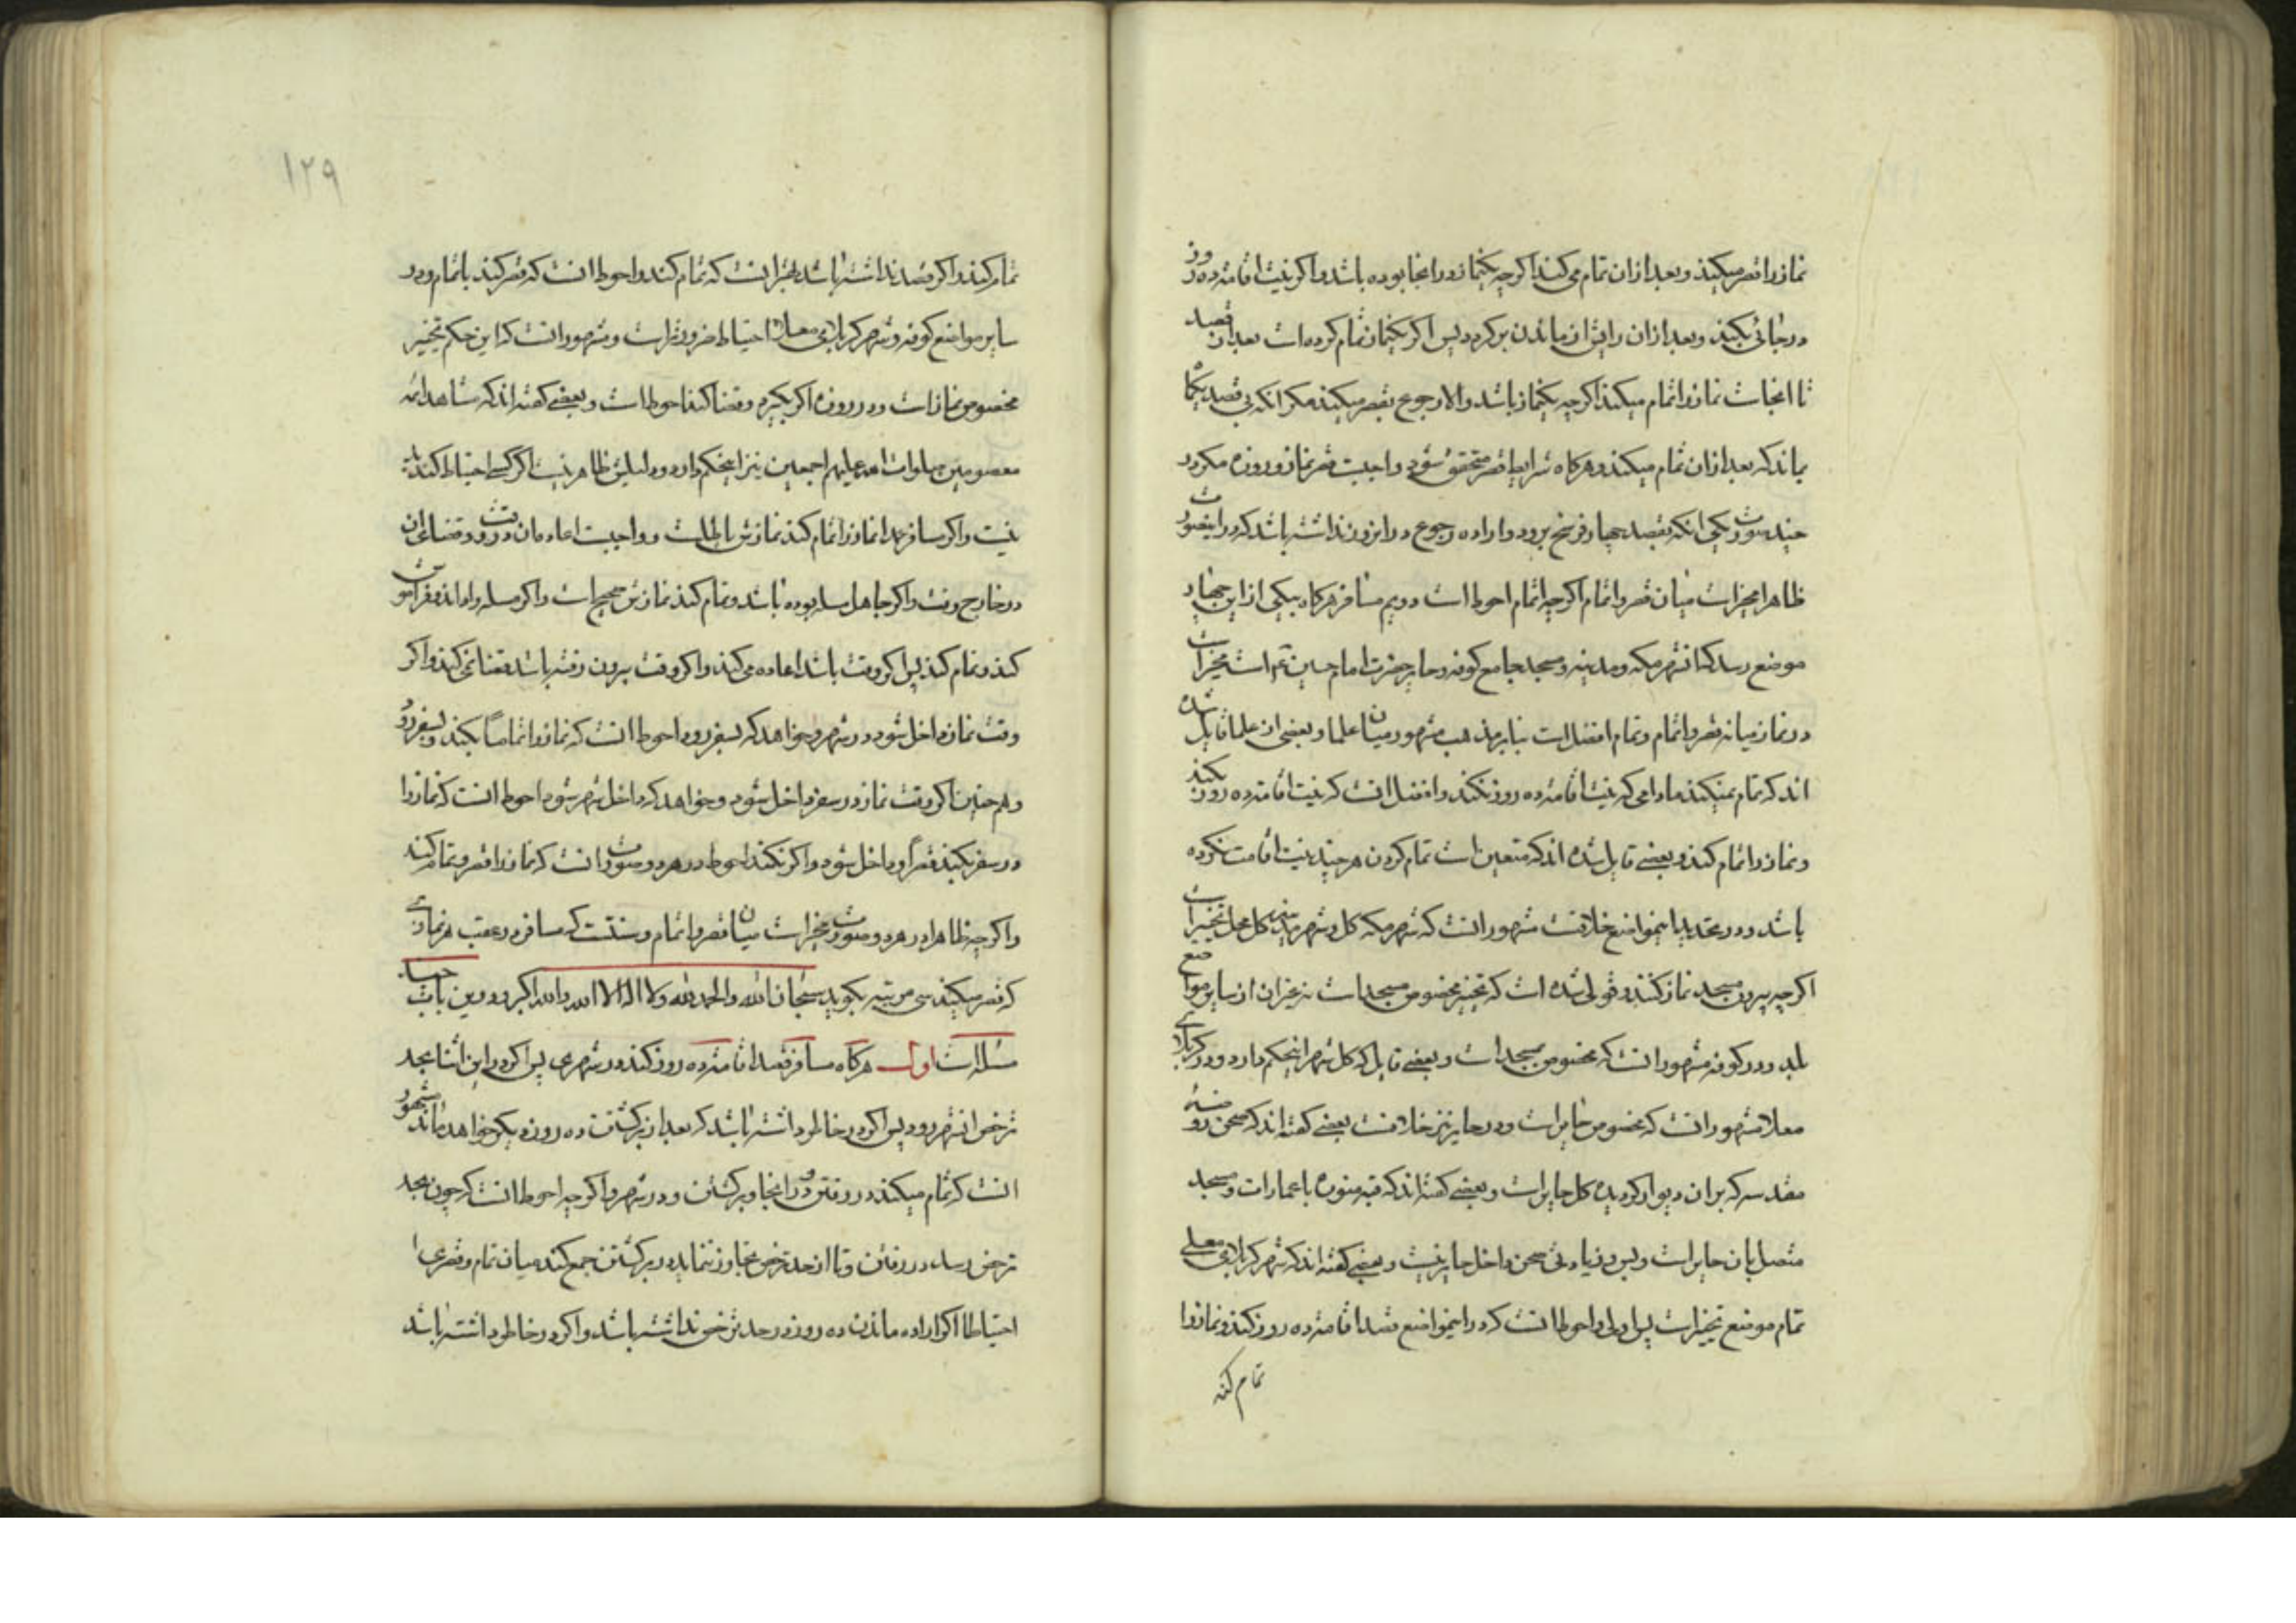 نماز را قصر میکند و بعد از ان تمام می کند اکر چه یکنماز در انجا بوده باشد و اکر نیت اقامه ده روز
در جائی بکند و بعد از ان رایش از ماندن بر کردد پس اکر یکنماز تمام کرده است بعد از قصد
تا انجاست نماز را تمام میکند اکر چه یکنماز باشد والا رجوع بقصر میکند مکر انکه بی قصد یکماه
بماند که بعد از ان تمام میکند و هرکاه شرایط قصر متحقق شود واجبست قصر نماز و روزه مکر در
چند صورت یکی انکه بقصد چهار فرسخ برود و اراده رجوع در انروز نداشته باشد که در اینصورت
ظاهرا مخیر است میان قصر و اتمام اکر چه اتمام احوط است دویم مسافر هرکاه بیکی از این چهار
موضع رسد که ان شهر مکه و مدینه و مسجد جامع کوفه و حایر حضرت امام حسین ع م است مخیر است
در نماز میانه قصر و اتمام و تمام افضل است بنابر مذهب مشهور میان علما و بعضی از علما قایل شده
اند که تمام نمیکند مادامی که نیت اقامه ده روز نکند و افضل انست که نیت اقامه ده روز بکند
و نماز را تمام کند و بعضی قایل شده اند که متعین است تمام کردن هر چند نیت اقامت نکرده
باشد و در تحدید اینمواضع خلافست مشهور انست که شهر مکه کل و شهر مدینه کل محل تخییر است
اکر چه بیرون مسجد نماز کنند و قولی شده است که تخییر مخصوص مسجد است نه غیر ان از سایر مواضع
بلد و در کوفه مشهور انست که مخصوص مسجد است و بعضی قایل که کل شهر اینحکم دارد و در کربلای
معلا مشهور انست که مخصوص حایر است و در حایر نیز خلافست بعضی کفته اند که صحن روضه
مقدسه که بر ان دیوار کردیده کل حایر است و بعضی کفته اند که قبه منوره با عمارات و مسجد
متصل بان حایر است و بس و زیادتی صحن داخل حایر نیست و بعضی کفته اند که شهر کربلای معلی
تمام موضع تخییر است پس اولی و احوط انست که در اینمواضع قصد اقامه ده روز کند و نماز را
تمام کند
۱۲۹
تمام کند و اکر قصد نداشته باشد بهتر انست که تمام کند و احوط انست که قصر کند با تمام و در
سایر مواضع کوفه و شهر کربلای معلا احتیاط ضرورتر است و مشهور انست که این حکم تخییر
مخصوص نماز است و در روزه اکر بکیرد و قضا کند احوط است و بعضی کفته اند که مشاهد ائمه
معصومین صلوات الله علیهم اجمعین نیز اینحکم دارد و دلیلش ظاهر نیست اکر کسی احتیاط کند بد
نیست و اکر مسافر عمدا نماز را تمام کند نمازش باطلست و واجبست اعاده ان در وقت و قضاء ان
در خارج وقت و اکر جاهل مسله بوده باشد و تمام کند نمازش صحیح است و اکر مسله را داند و فراموش
کند و تمام کند پس اکر وقت باشد اعاده می کند و اکر وقت بیرون رفته باشد قضا نمی کند و اکر
وقت نماز داخل شود در شهر و خواهد که بسفر رود احوط انست که نماز را تماما بکند و بسفر رود
و هم چنین اکر وقت نماز در سفر داخل شود و خواهد که داخل شهر شود احوط انست که نماز را
در سفر بکند قصرا و داخل شود و اکر نکند احوط در هر دو صورت انست که نماز را قصر و تمام کند
و اکر چه ظاهرا در هر دو صورت مخیر است میان قصر و اتمام و سنتست که مسافر در عقب هر نمازی
که قصر میکند سی مرتبه بکوید سبحان الله والحمد لله ولا اله الا الله والله اکبر و در این باب چند
مسله است اول هرکاه مسافر قصد اقامه ده روز کند در شهری پس اکر در این اثنا بحد
ترخص ان شهر رود پس اکر در خاطر داشته باشد که بعد از برکشتن ده روز دیکر خواهد ماند مشهور
انست که تمام میکند در رفتن و در انجا و برکشتن و در شهر و اکر چه احوط انست که چون بحد
ترخص رسد در رفتن و تا از حد ترخص تجاوز ننماید در برکشتن جمع کند میان تمام و قصر
احتیاطا اکر اراده ماندن ده روز در حد ترخص نداشته باشد و اکر در خاطر داشته باشد